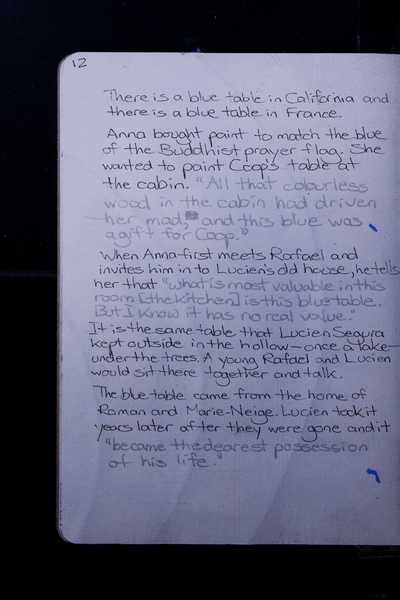 12
There is a blue table in California and
there is a blue table in France.
Anna bought paint to match the blue
of the Buddhist prayer flag. She
wanted to paint Coop's table at
the cabin. "All that colourless
wood in the cabin had driven
her mad, and this blue was
a gift for Coop."
When Anna first meets Rafael and
invites him in to Lucien's old house, he tells
her that "what is most valuable in this
room [the kitchen] is this blue table.
But I know it has no real value."
It is the same table that Lucien Segura
kept outside in the hollow—once a lake—
under the trees. A young Rafael and Lucien
would sit there together and talk.
The blue table came from the home of
Roman and Marie-Neige. Lucien took it
years later after they were gone and it
"became the dearest possession
of his life."